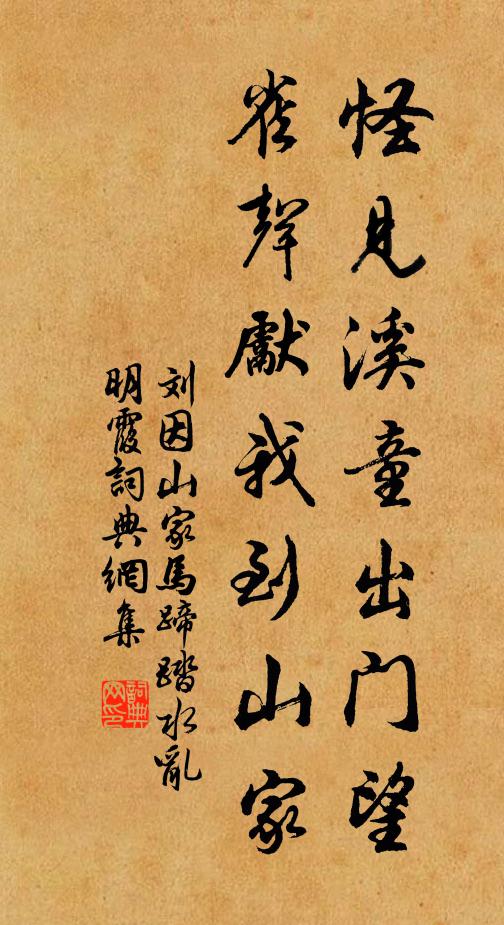 怪見溪童出门望
雀聲獻我到山家
刘因山家馬蹄踏水亂
明霞詞典網集
詞典网印